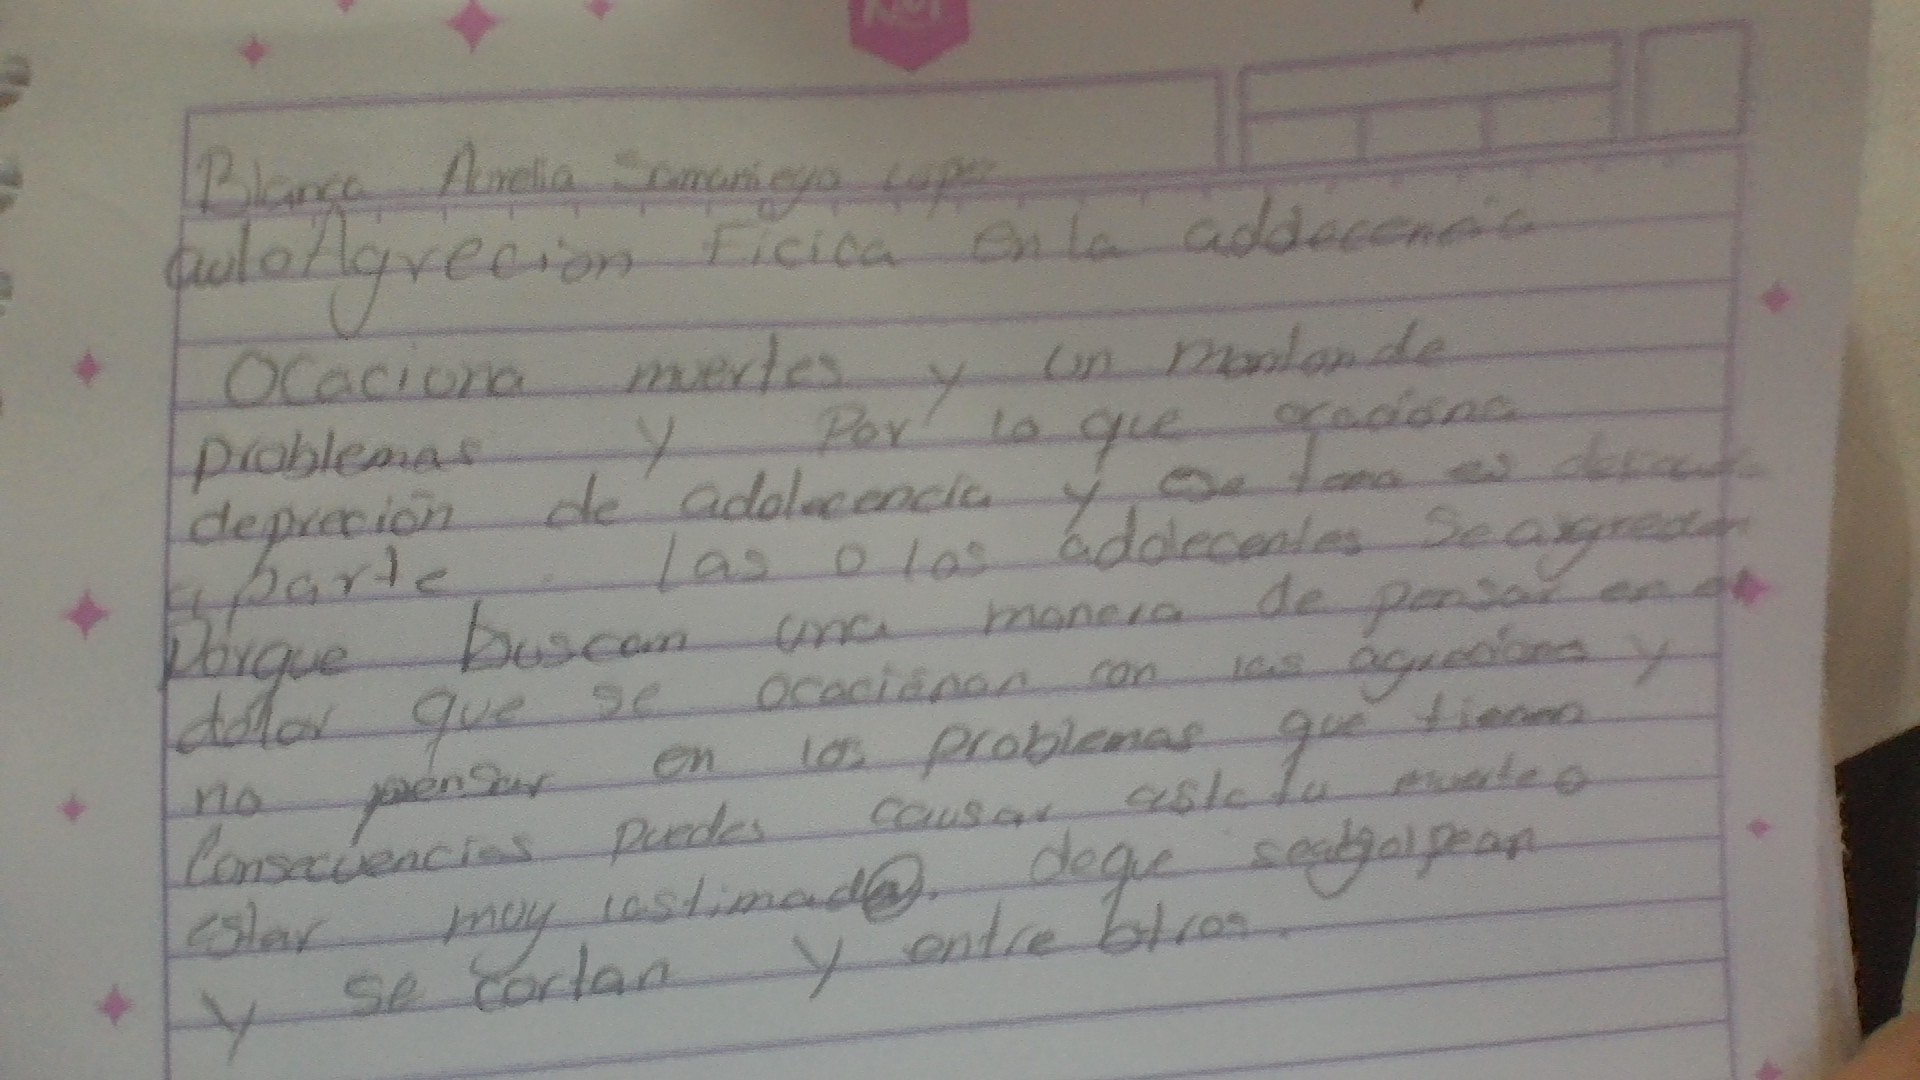 Blanca Aurelia Samaniego Lopez
autoAgrecion Ficica en la addecencia
Ocaciona muertes y un monton de
problemas y Por lo que ocaciona
deprecion de adolecencia y ese tema es
aparte las o los addecentes se agreden
Porque buscan una manera de pensar en el
dolor que se ocacionan con las agreciones y
no pensar en los problemas que tienen
Consecuencias puedes causar aste tu muerte o
estar muy lastimad@. deque segolpean
y se cortan y entre otros.